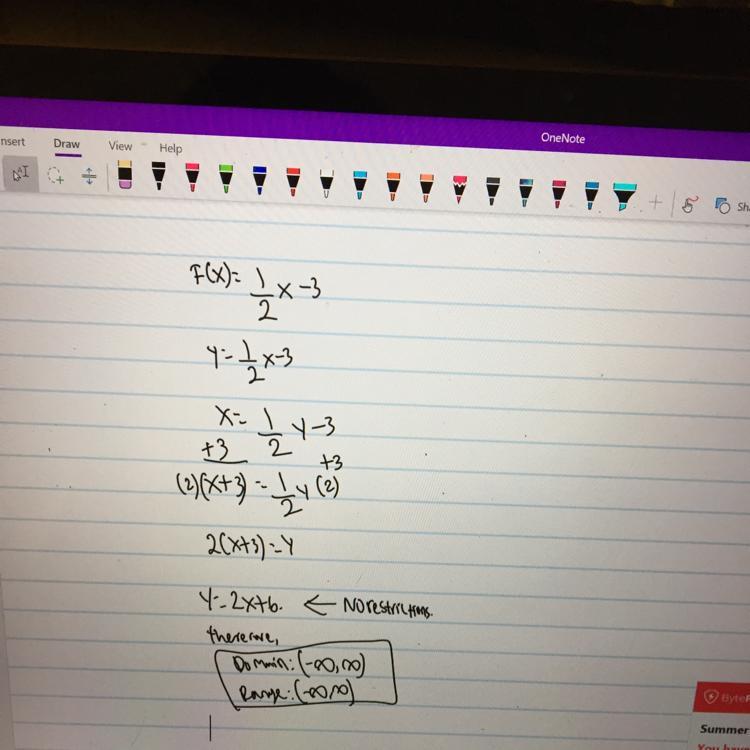 OneNote
nsert Draw View Help
Sh
F(x)= 1/2 x -3
y= 1/2 x-3
x= 1/2 y-3
+3 +3
(2)(x+3) = 1/2 y (2)
2(x+3)=y
y=2x+6. ← No restrictions.
therefore,
Domain: (-∞,∞)
Range: (-∞,∞)
ByteF
Summer
You have